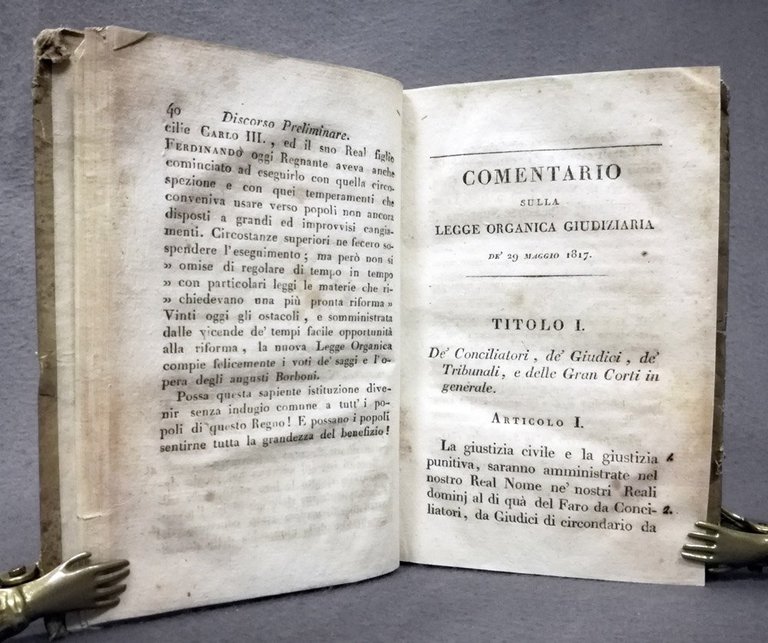 40 Discorso Preliminare.
cilie CARLO III. , ed il suo Real figlio
FERDINANDO oggi Regnante aveva anche
cominciato ad eseguirlo con quella circo-
spezione e con quei temperamenti che
conveniva usare verso popoli non ancora
disposti a grandi ed improvvisi cangia-
menti. Circostanze superiori ne fecero so-
spendere l'eseguimento ; ma però non si
» omise di regolare di tempo in tempo
» con particolari leggi le materie che ri-
» chiedevano una più pronta riforma »
Vinti oggi gli ostacoli , e somministrata
dalle vicende de' tempi facile opportunità
alla riforma , la nuova Legge Organica
compie felicemente i voti de' saggi e l'o-
pera degli augusti Borboni.
Possa questa sapiente istituzione dive-
nir senza indugio comune a tutt' i po-
poli di questo Regno ! E possano i popoli
sentirne tutta la grandezza del benefizio !
COMENTARIO
SULLA
LEGGE ORGANICA GIUDIZIARIA
DE' 29 MAGGIO 1817.
TITOLO I.
De' Conciliatori , de' Giudici , de'
Tribunali , e delle Gran Corti in
generale.
ARTICOLO I.
La giustizia civile e la giustizia 1.
punitiva, saranno amministrate nel
nostro Real Nome ne' nostri Reali
dominj al di quà del Faro da Conci- 2.
liatori, da Giudici di circondario da